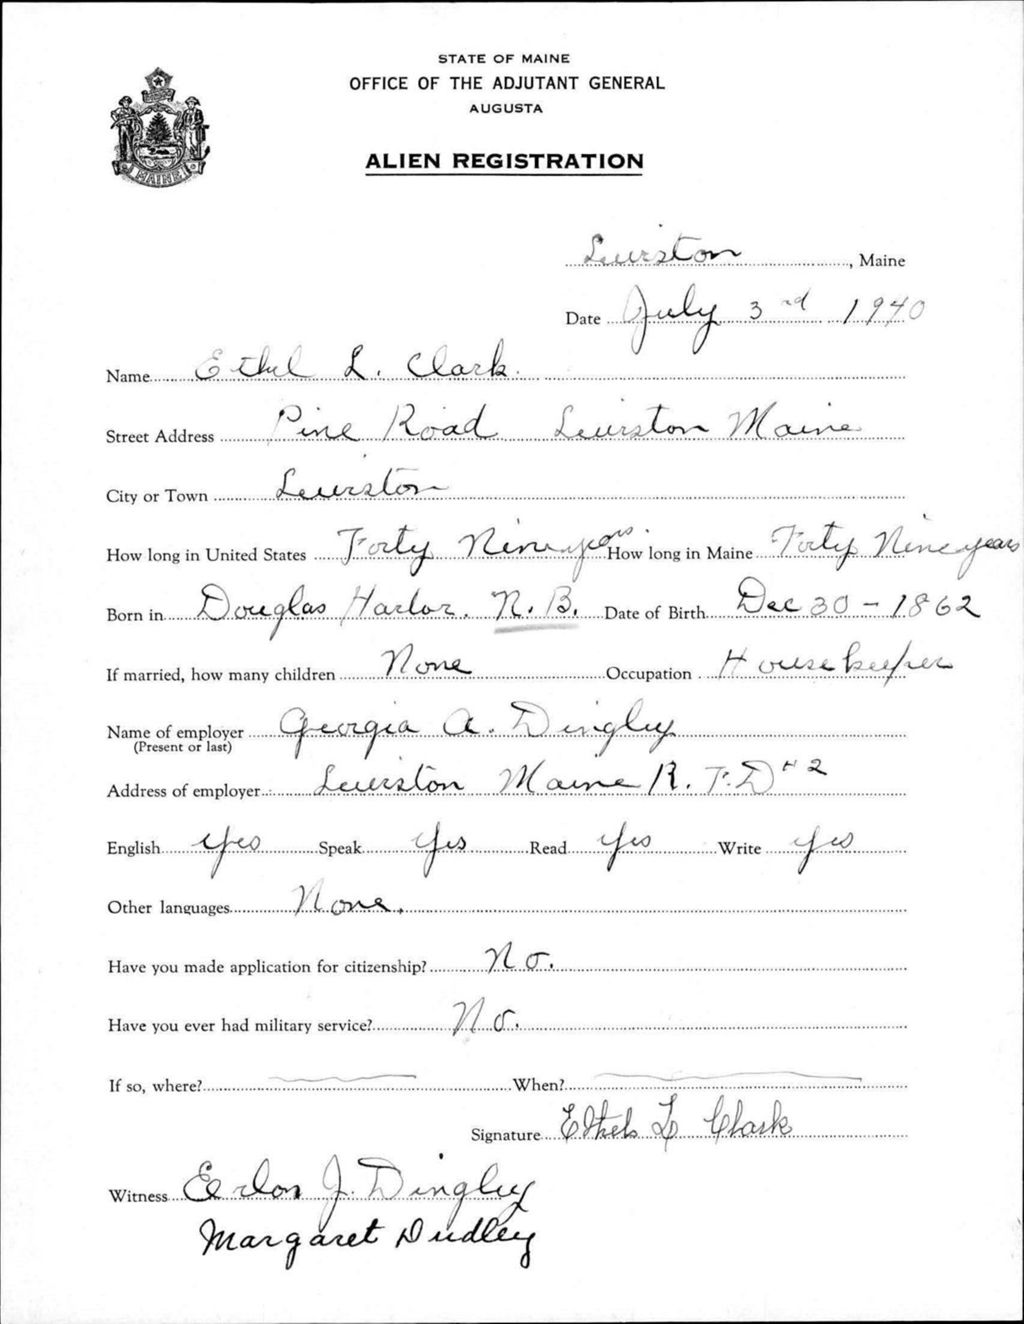 STATE OF MAINE
OFFICE OF THE ADJUTANT GENERAL
AUGUSTA
ALIEN REGISTRATION
MAINE
Lewiston, Maine
Date July 3rd 1940
Name Ethel L. Clark.
Street Address Pine Road Lewiston Maine
City or Town Lewiston
How long in United States Forty Nine years. How long in Maine Forty Nine years
Born in Douglas Harbor. N.B. Date of Birth Dec 30 - 1862
If married, how many children None Occupation Housekeeper
Name of employer Georgia A. Dingley
(Present or last)
Address of employer Lewiston Maine R.F.D #2
English yes Speak Yes Read Yes Write Yes
Other languages None.
Have you made application for citizenship? No.
Have you ever had military service? No.
If so, where? When?
Signature Ethel L Clark
Witness J. Dingley
Margaret Dudley